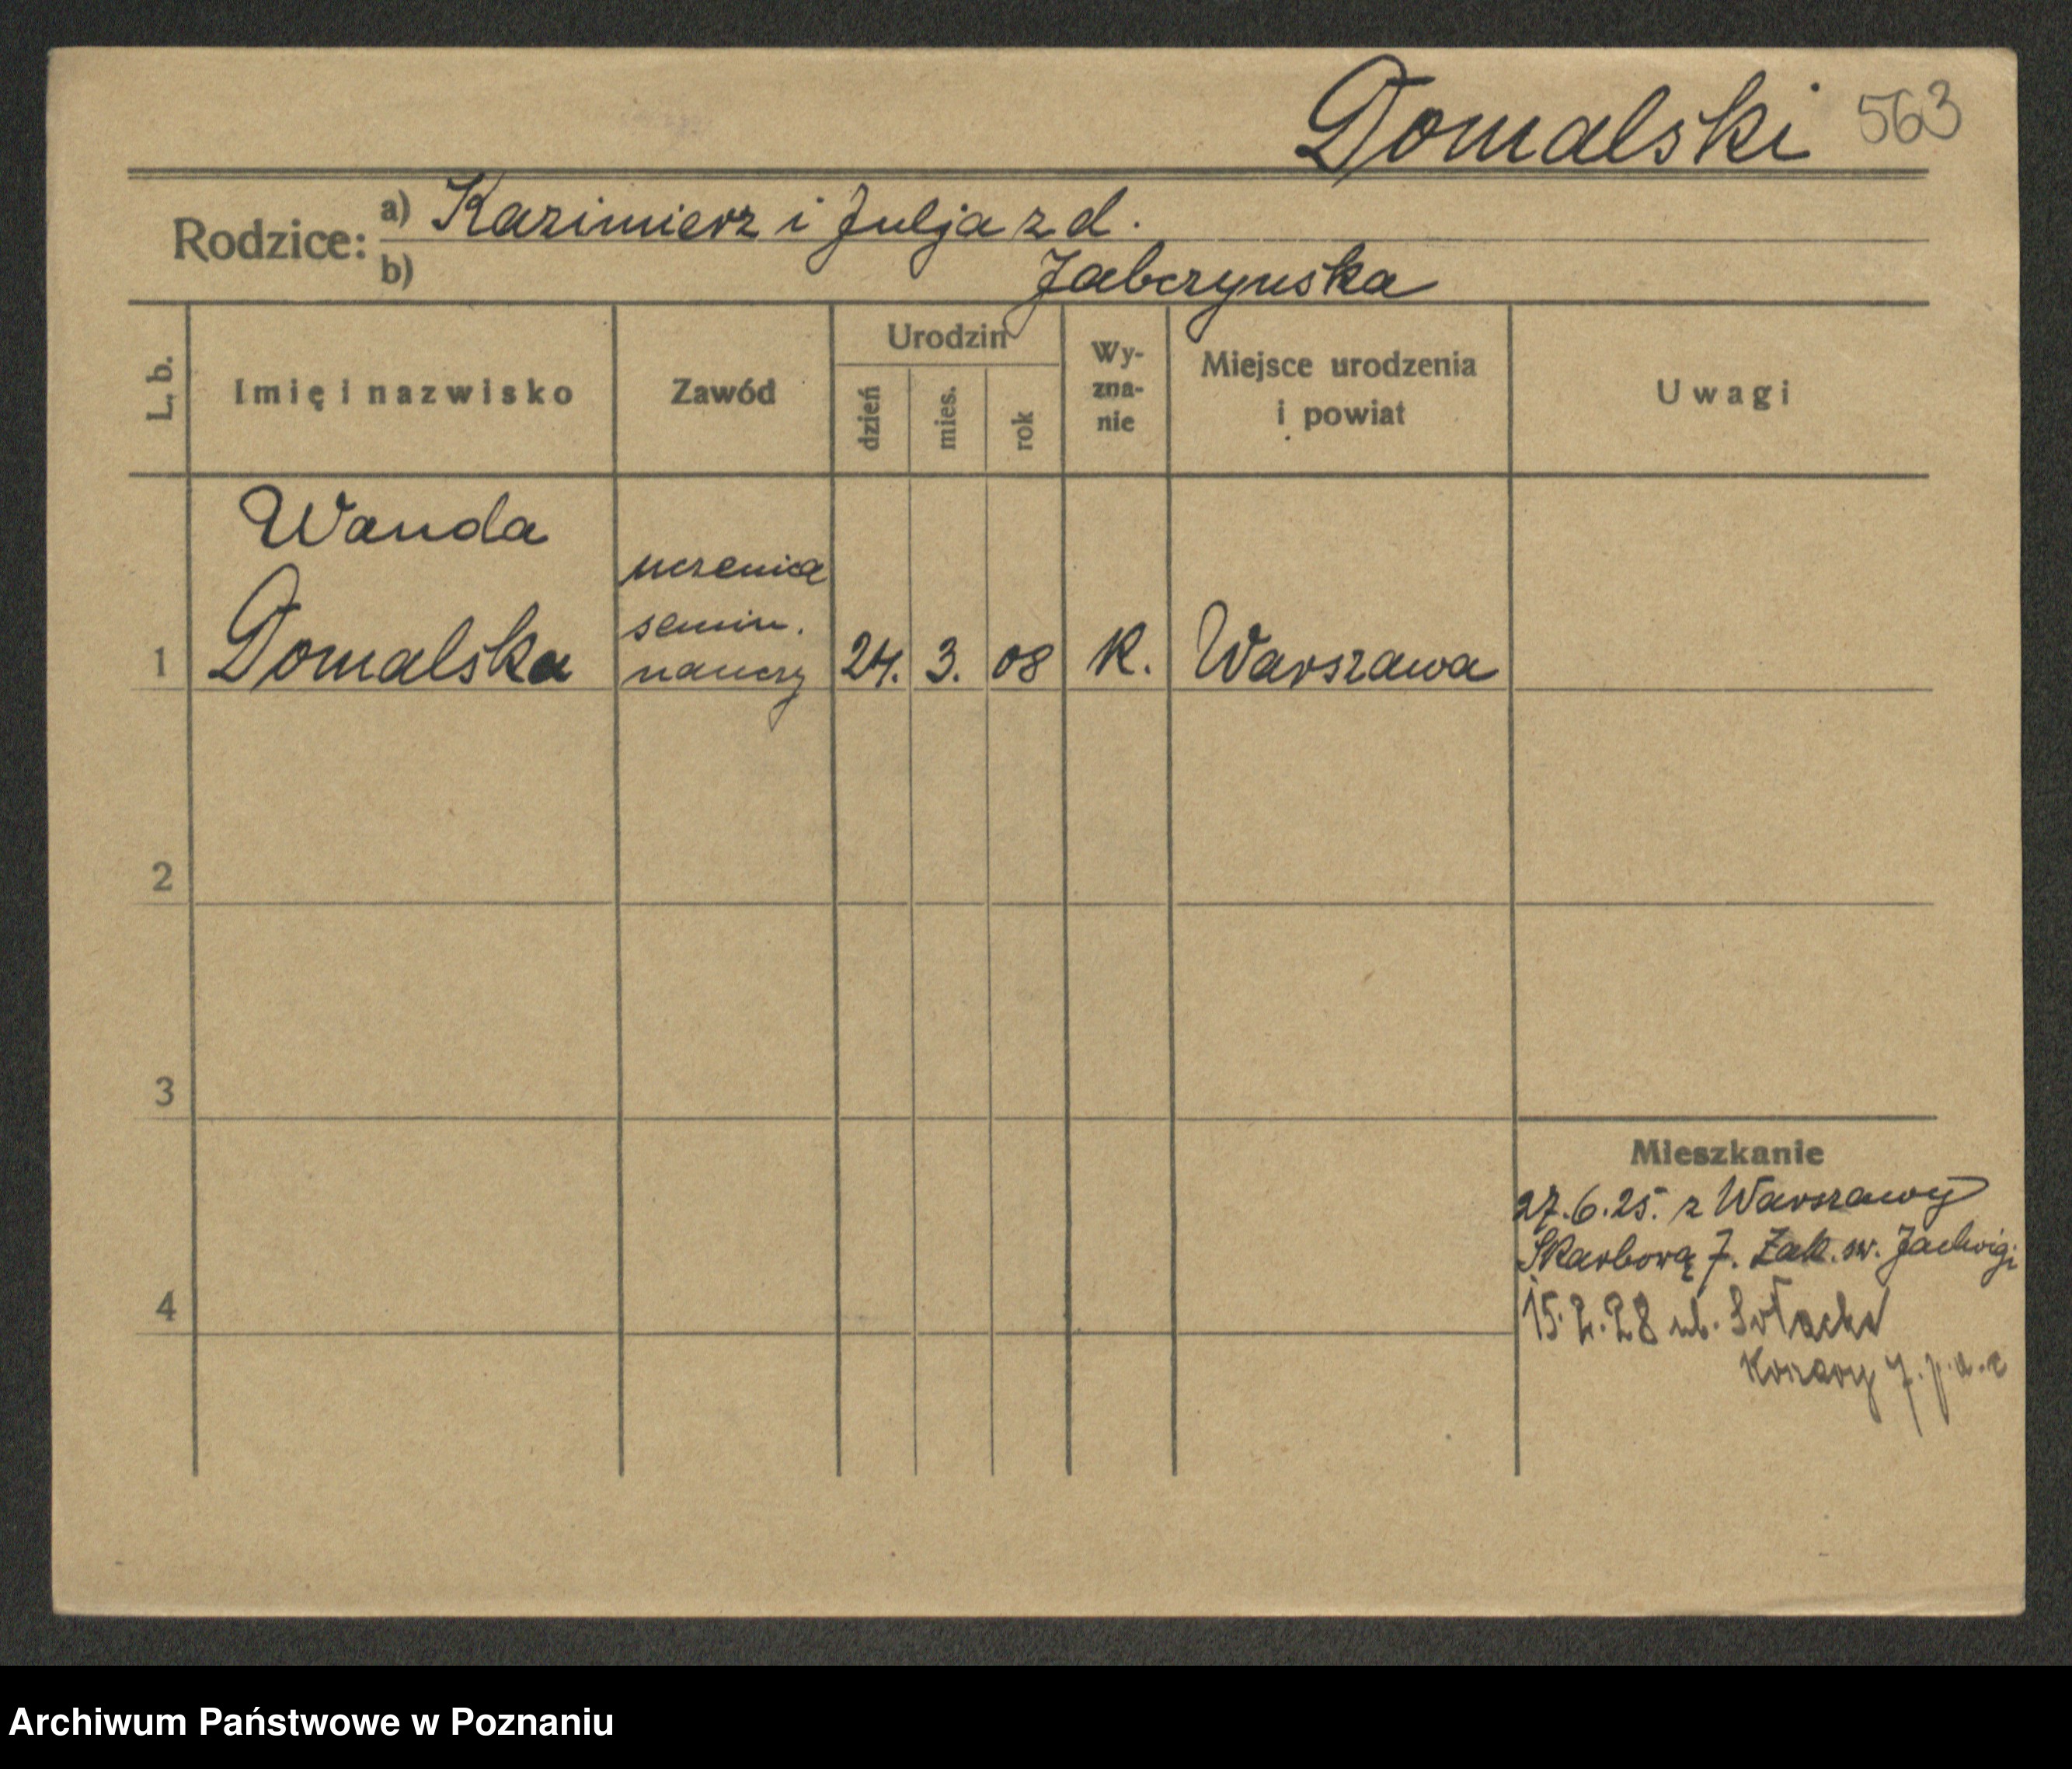 Domalski 563
Rodzice: a) Kazimierz i Julja z d.
b) Jabczynska
L. b.
Imię i nazwisko
Zawód
Urodzin
dzień
mies.
rok
Wy-
zna-
nie
Miejsce urodzenia
i powiat
Uwagi
Wanda
Domalska
uczenica
semin.
nauczy
1
24. 3. 08 K. Warszawa
2
3
4
Mieszkanie
27.6.25. z Warszawy
Skarbową 7. Zak. sw. Jadwigi
15.2.28
7.
Archiwum Państwowe w Poznaniu